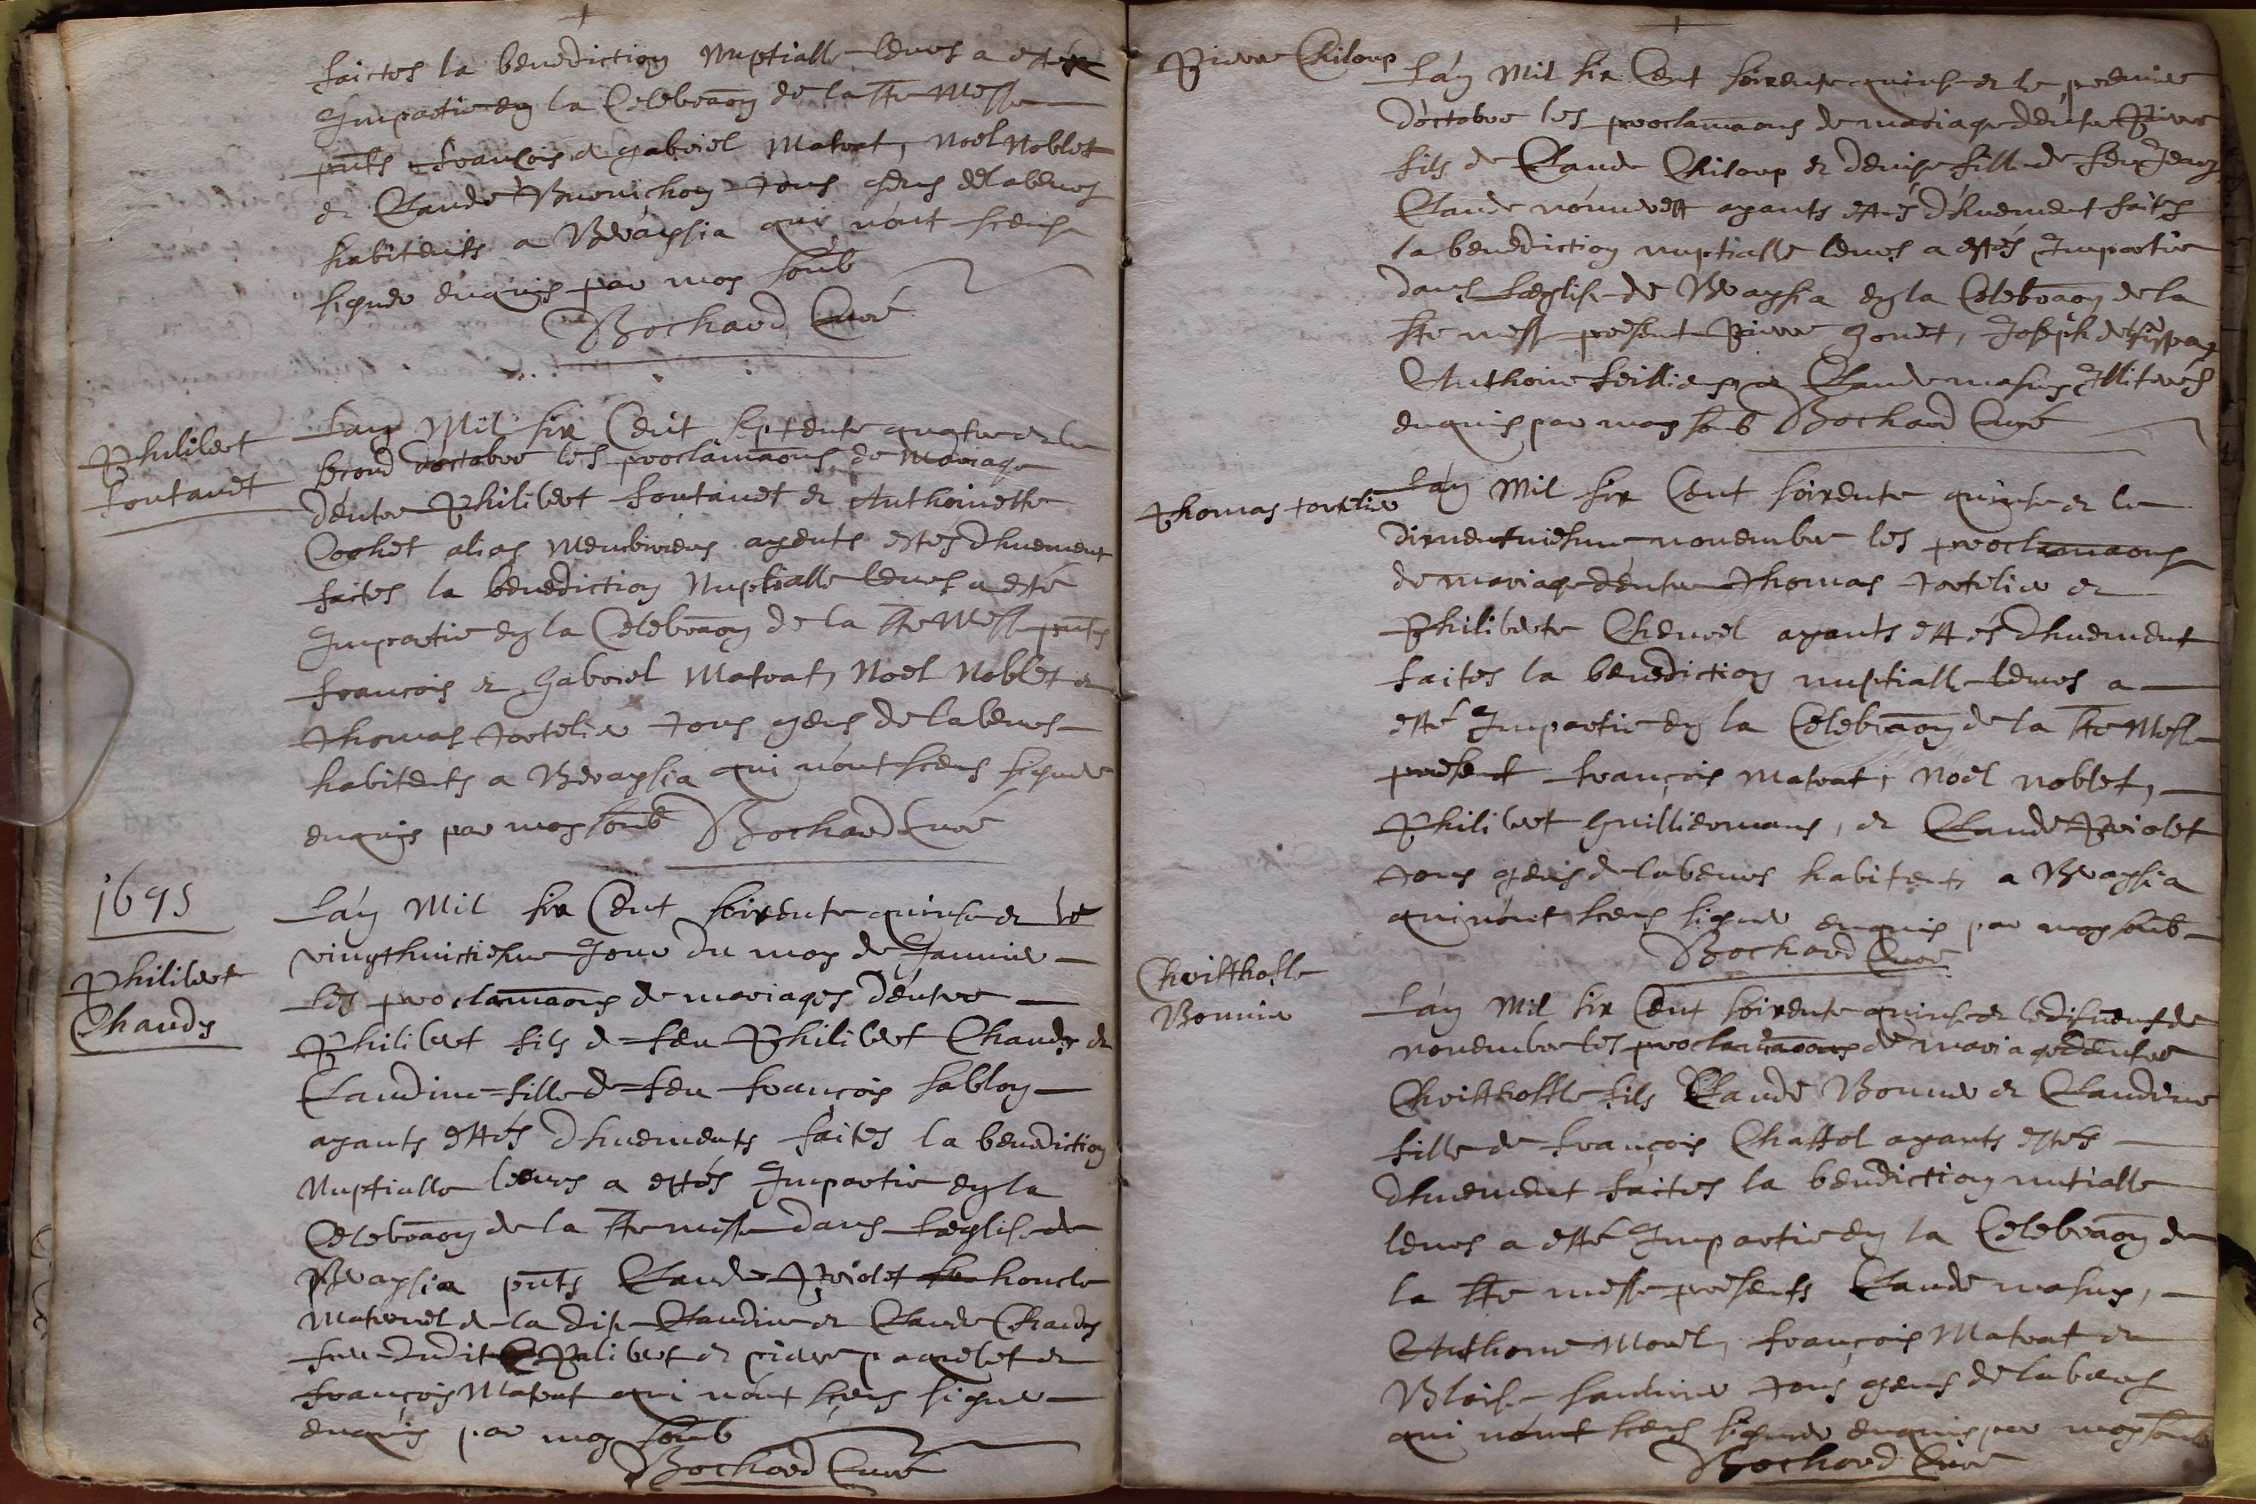 faictes la benediction Nuptialle leurs a esté
Impartie en la Celebraon de la Ste Messe
pnts francois et gabriel Matrat, Noel Noblet
et Claude Bronichon tous gens de labeurs
habitents a Bragsia qui n'ont sceus
signer enquis par moy soub
Bochard Curé
Philibert
fontanet
Lan Mil six Cent septente quatre et le
second doctobre les proclamaons de Mariage
d'entre Philibert fontanet et Anthoinette
Cochet alias ayents estés dhuement
faites la benediction Nuptialle leurs a esté
Impartie en la Celebraon de la Ste Messe pnts
francois et Gabriel Matrat, Noel Noblet et
Thomas tortelier tous gens de labeurs
habitents a Bragsia qui n'ont sceus signer
enquis par moy soub Bochard Curé
1675
Philibert
Chandy
L'an Mil six Cent soixente quinse et le
vingthuictiesme Jour du moy de Janvier
les proclamaons de mariages d'entre
Philibert fils de feu Philibert Chandy et
Claudine fille de feu françois sablon
ayants estés dhuements faites la benediction
Nuptialle leurs a estés Impartie en la
Celebraon de la Ste messe dans Leglise de
Bragsia pnts Claude Priolet honcle
Maternel de la dite Claudine et Claude Chandy
frere dudit Philibert et pierre paquelet et
françois Matrat qui n'ont sceus signer
enquis par moy soub
Bochard Curé
Pierre Chiloup
L'an Mil six Cent soixente quinse et le premier
d'octobre les proclamaons de mariage d'entre Pierre
fils de Claude Chiloup et denise fille de feu Jean
Claude ayants estés d'huement faites
la benediction nuptialle leurs a estés Impartie
dans Leglise de Bragsia en la Celebraon de la
Ste messe present Pierre gonet, Joseph
Anthoine et Claude masuy Illiterés
enquis par moy soub Bochard Curé
Thomas tortelier
L'an Mil six Cent soixente quinse et le
dixneufviesme novembre les proclamaons
de mariage d'entre Thomas tortelier et
Philiberte Chevrel ayants estés dhuement
faites la benediction nuptialle leurs a
esté Impartie en la Celebraon de la Ste Messe
present françois Matrat, Noel noblet,
Philibert Guilliermans, et Claude Priolet
tous gens de labeurs habitents a Bragsia
qui n'ont sceus signer enquis par moy soub
Bochard Curé
Christhofle
Bonnier
L'an Mil six Cent soixente quinse et le disneuf de
novembre les proclamaons de mariage d'entre
Christhofle fils Claude Bonnier et Claudine
fille de françois Chaffol ayants estés
dhuement faites la benediction nutialle
leurs a esté Impartie en la Celebraon de
la Ste messe presents Claude masuy,
Anthoine Morel, françois Matrat et
Bloise tous gens de labeurs
qui n'ont sceus signer enquis par moy soub
Bochard Curé